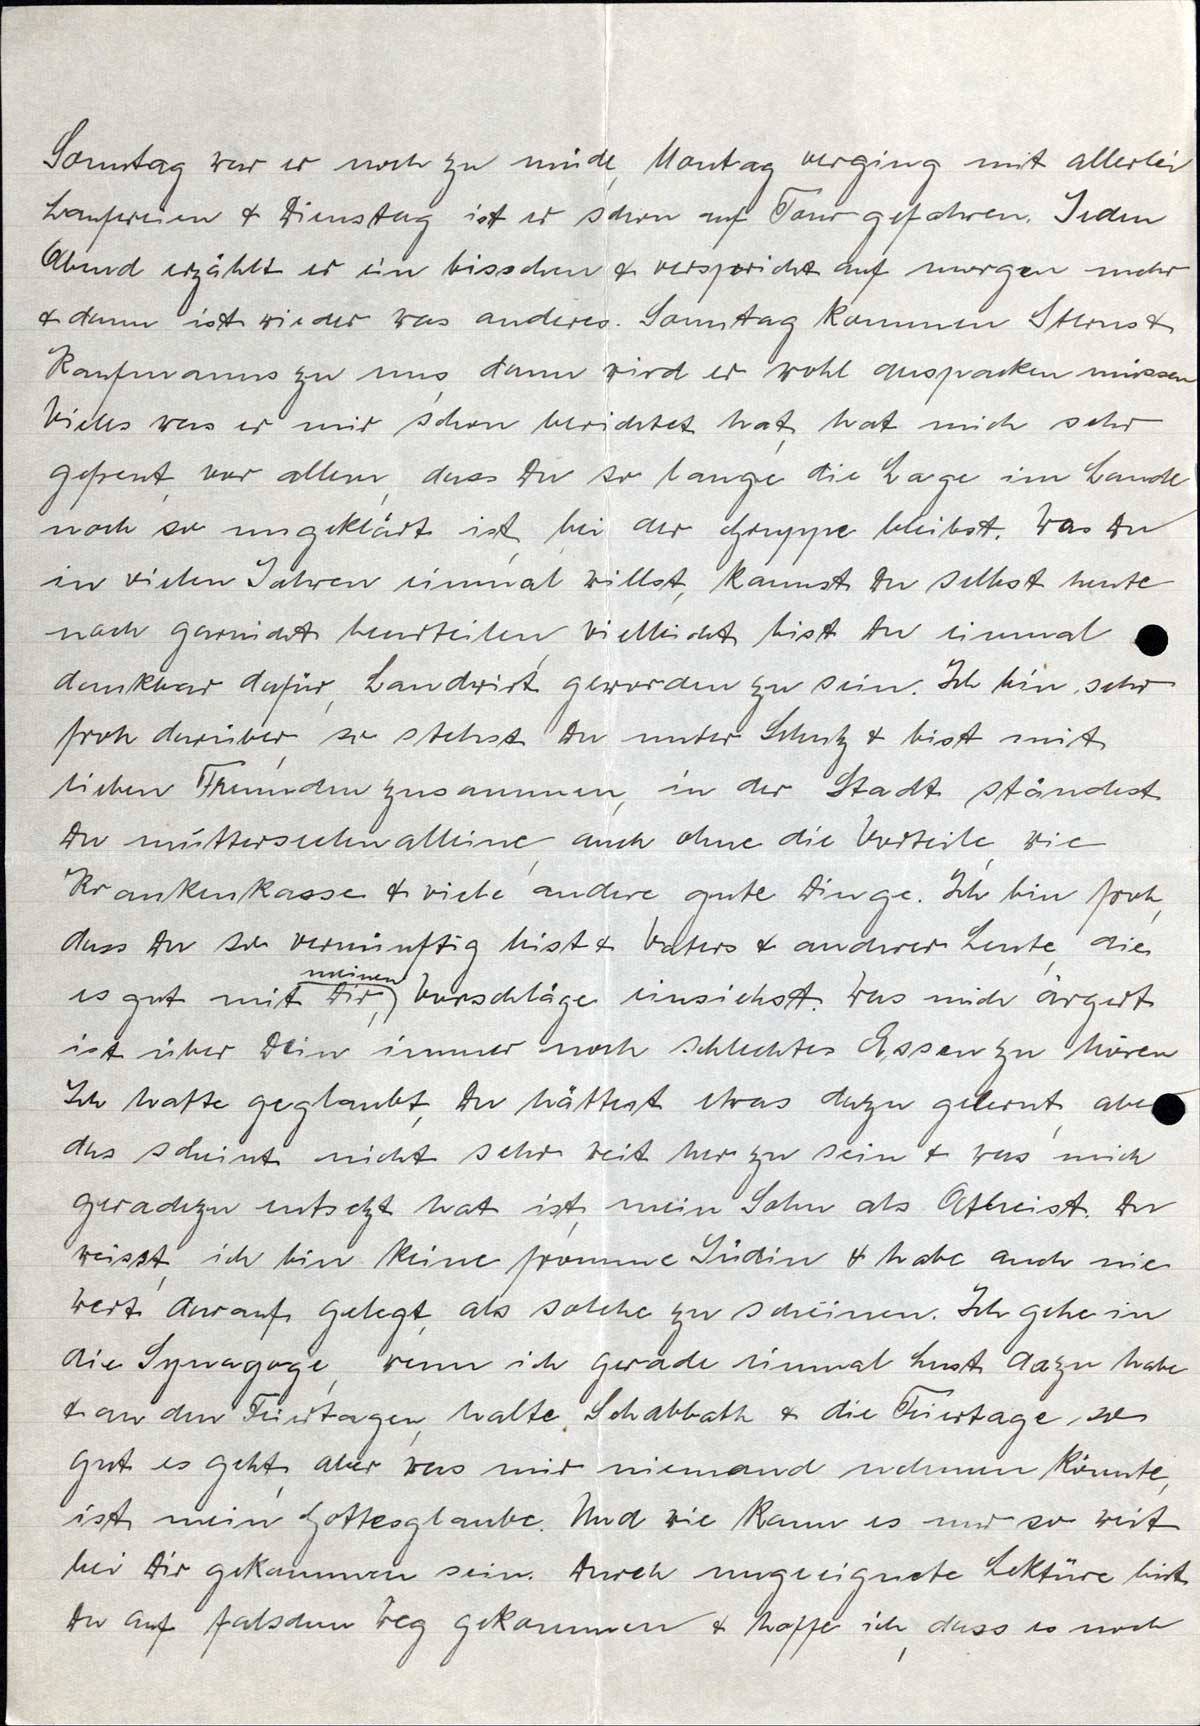 Sonntag war er noch zu müde, Montag verging mit allerlei
Laufereien & Dienstag ist er schon auf Tour gefahren. Jeden
Abend erzählt er ein bisschen & verspricht auf morgen mehr
& dann ist wieder was anderes. Sonntag kommen Sterns &
Kaufmanns zu uns, dann wird er wohl auspacken müssen
Vieles was er mir schon berichtet hat, hat mich sehr
gefreut, vor allem, dass Du so lange die Lage im Lande
noch so ungeklärt ist, bei der Gruppe bleibst. Was Du
in vielen Jahren einmal willst, kannst Du selbst heute
noch garnicht beurteilen, vielleicht bist Du einmal
dankbar dafür, Landwirt geworden zu sein. Ich bin sehr
froh darüber, so stehst Du unter Schutz & bist mit
lieben Freunden zusammen, in der Stadt ständest
Du mutterseelenalleine, auch ohne die Vorteile, wie
Krankenkasse & viele andere gute Dinge. Ich bin froh,
dass Du so vernünftig bist & Vaters & anderer Leute, die
es gut mit Dir meinen, Vorschläge einsiehst. Was mich ärgert
ist über Dein immer noch schlechtes Essen zu hören
Ich hatte geglaubt, Du hättest etwas dazu gelernt, aber
das scheint nicht sehr weit her zu sein & was mich
geradezu entsetzt hat ist, mein Sohn als Atheist. Du
weisst, ich bin keine fromme Jüdin & habe auch nie
Wert darauf gelegt, als solche zu scheinen. Ich gehe in
die Synagoge, wenn ich gerade einmal Lust dazu habe
& an den Feiertagen, halte Schabbath & die Feiertage, so
gut es geht, aber was mir niemand nehmen könnte,
ist mein Gottesglaube. Und wie kann es nur so weit
bei Dir gekommen sein. Durch ungeeignete Lektüre bist
Du auf falschen Weg gekommen & hoffe ich, dass es noch